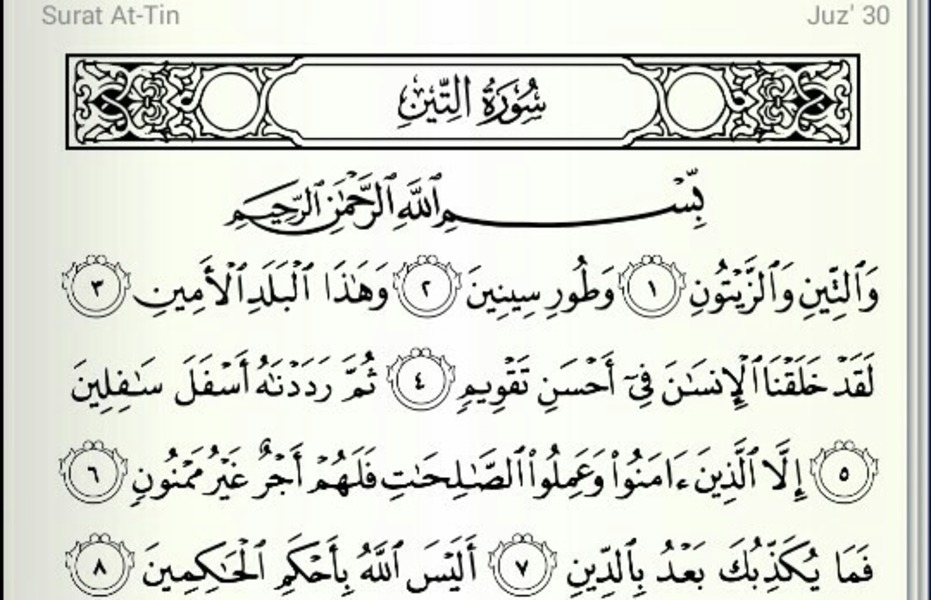 Surat At-Tin Juz' 30
سُورَةُ التِّينِ
بِّسْمِ ٱللَّهِ ٱلرَّحْمَٰنِ ٱلرَّحِيمِ
وَٱلتِّينِ وَٱلزَّيْتُونِ ١ وَطُورِ سِينِينَ ٢ وَهَٰذَا ٱلْبَلَدِ ٱلْأَمِينِ ٣
لَقَدْ خَلَقْنَا ٱلْإِنسَٰنَ فِىٓ أَحْسَنِ تَقْوِيمٍ ٤ ثُمَّ رَدَدْنَٰهُ أَسْفَلَ سَٰفِلِينَ
٥ إِلَّا ٱلَّذِينَ ءَامَنُوا۟ وَعَمِلُوا۟ ٱلصَّٰلِحَٰتِ فَلَهُمْ أَجْرٌ غَيْرُ مَمْنُونٍ ٦
فَمَا يُكَذِّبُكَ بَعْدُ بِٱلدِّينِ ٧ أَلَيْسَ ٱللَّهُ بِأَحْكَمِ ٱلْحَٰكِمِينَ ٨